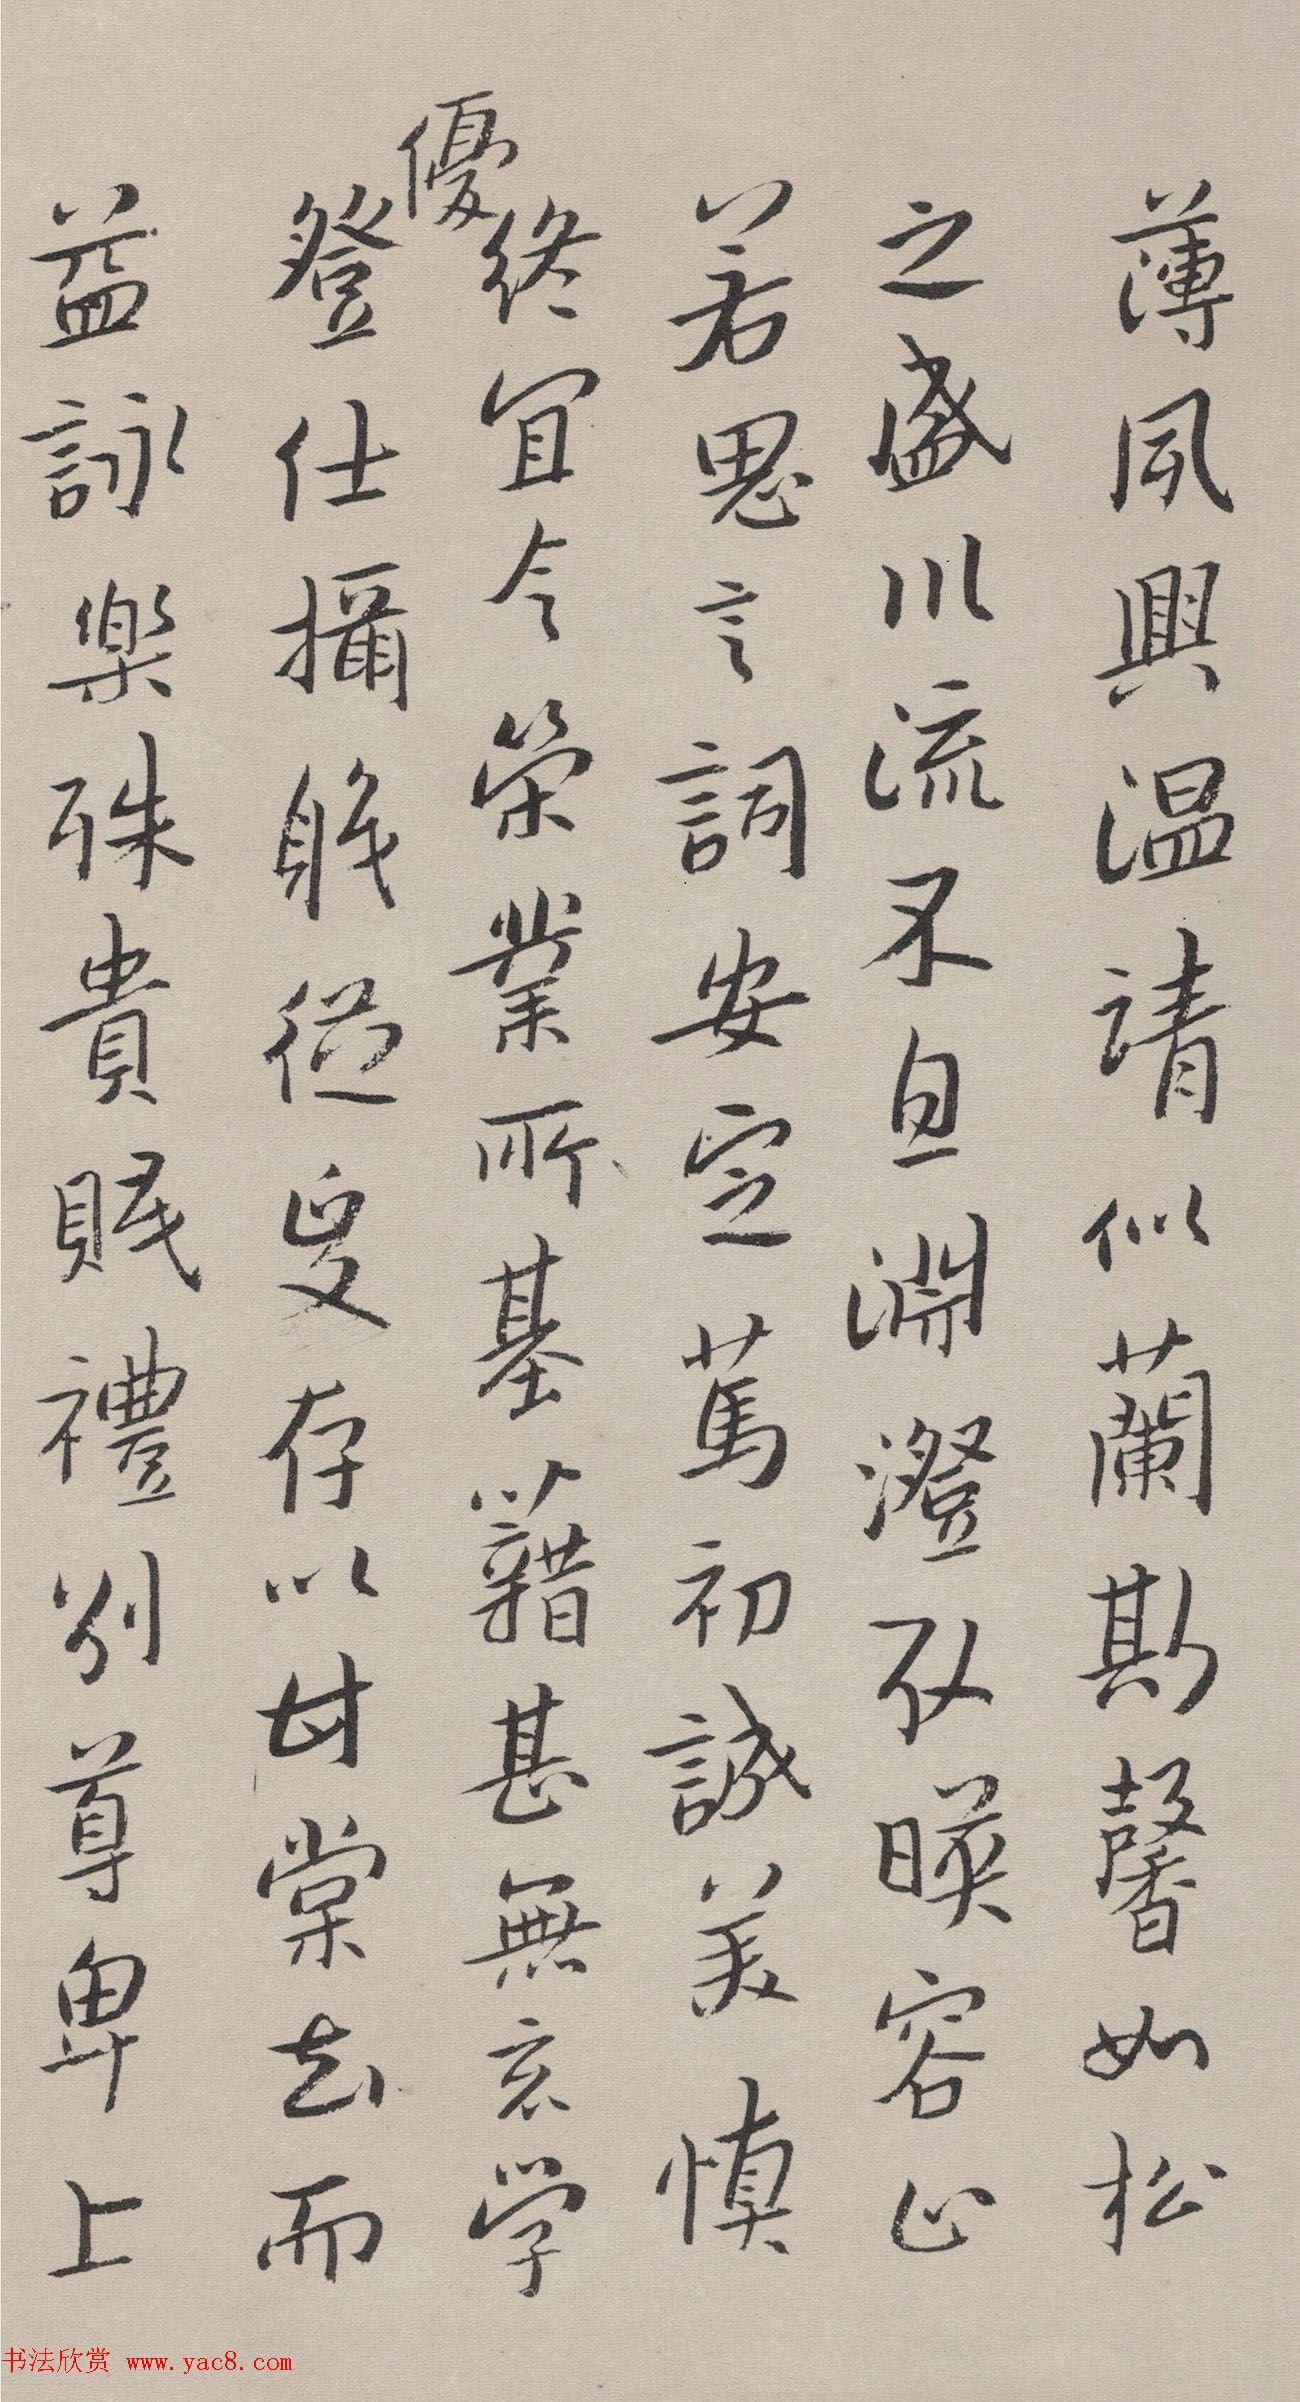 薄夙興温請似蘭斯馨如松
之盛川流不息淵澄取暎容止
若思言詞安定篤初誠美慎
終宜令榮業所基藉甚無竟学
優
登仕攝職從政存以甘棠去而
益詠楽殊貴賤禮別尊卑上
书法欣赏 www.yac8.com